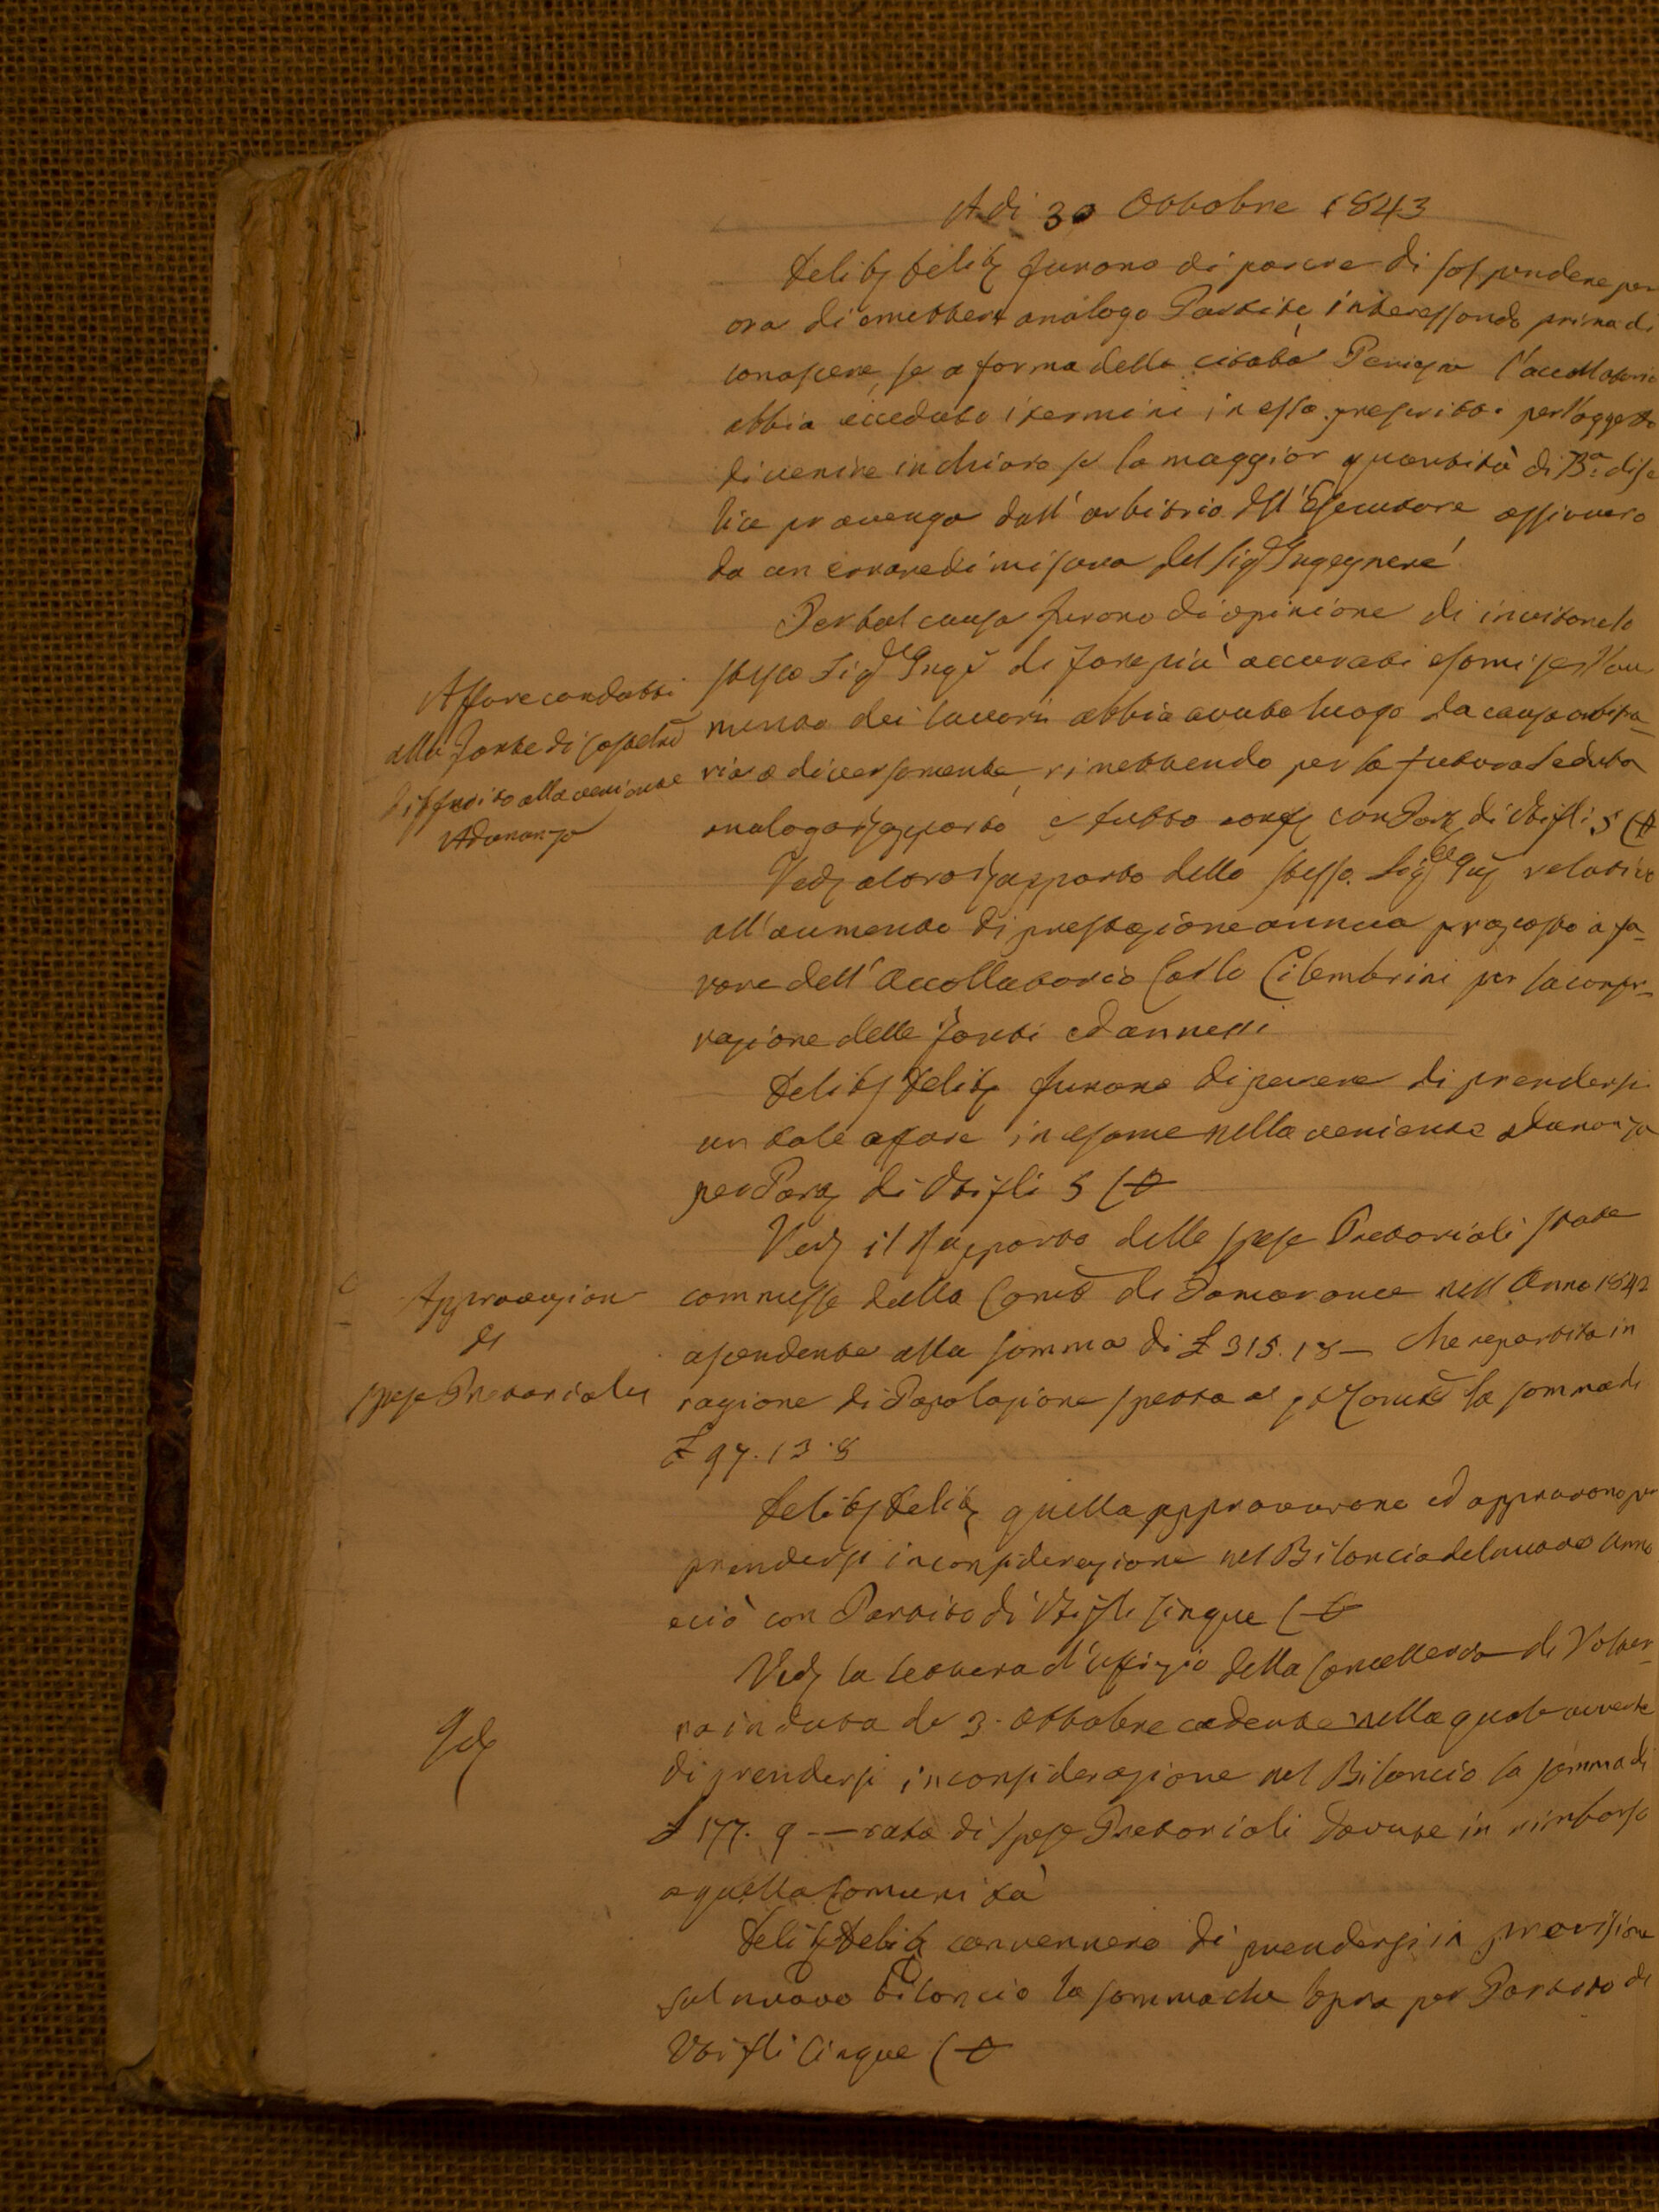 Adì 30 Ottobre 1843
Delib Delib furono di parere di sospendere per
ora di emettere analogo Partito, interessando prima di
conoscere, se a forma della citata Perizia l'accollatario
abbia ecceduto i termini in essa prescritti per l'oggetto
di venire in chiaro se la maggior quantità di Ba di se
lice provenga dall'arbitrio dell'Esecutore ossivvero
da un errore di misura del Sigr Ingegnere
Per tal causa furono di opinione di invitare lo
stesso Sigr Inge di fare più accurati esami se l'au
Affare condotti
alla Fonte di
differito alla veniente
Adunanza
mento dei lavori abbia avuto luogo da causa arbitra-
ria o diversamente, rimettendo per la futura seduta
analogo rapporto e tutto con Par di Vti fli 5 C
Ved altro rapporto dello stesso Sigr Ing relativo
all'aumento di prestazione annua proposto a fa-
vore dell'Accollatario Carlo Cilembrini per la
razione delle Fonti ed annessi
Delib Delib furono di parere di prendersi
un tale affare in esame nella veniente adunanza
per Par di Vti fli 5 C
Ved il rapporto delle spese Pretoriali state
Approvazione
di
spese Pretoriales
commesse dalla Comtà di Pomarance nell'Anno 1842
ascendente alla somma di £ 315.18 — che repartita in
ragione di Popolazione spetta a Comtà la somma di
£ 97.13.8
Delib Delib quella approvarono ed approvano per
prendersi in considerazione nel Bilancio del nuovo Anno
e ciò con Partito di Vti fli Cinque C
Ved la lettera d'ufizio della Cancelleria di Volter-
Id
ra in data de 3. Ottobre cadente nella quale avverte
di prendersi in considerazione nel Bilancio la somma di
£ 177. 9 — rata di spese Pretoriali dovute in rimborso
a quella Comunità
Delib Delib convennero di prendersi in previsione
sul nuovo Bilancio la somma che sopra per Partito di
Vti fli Cinque C